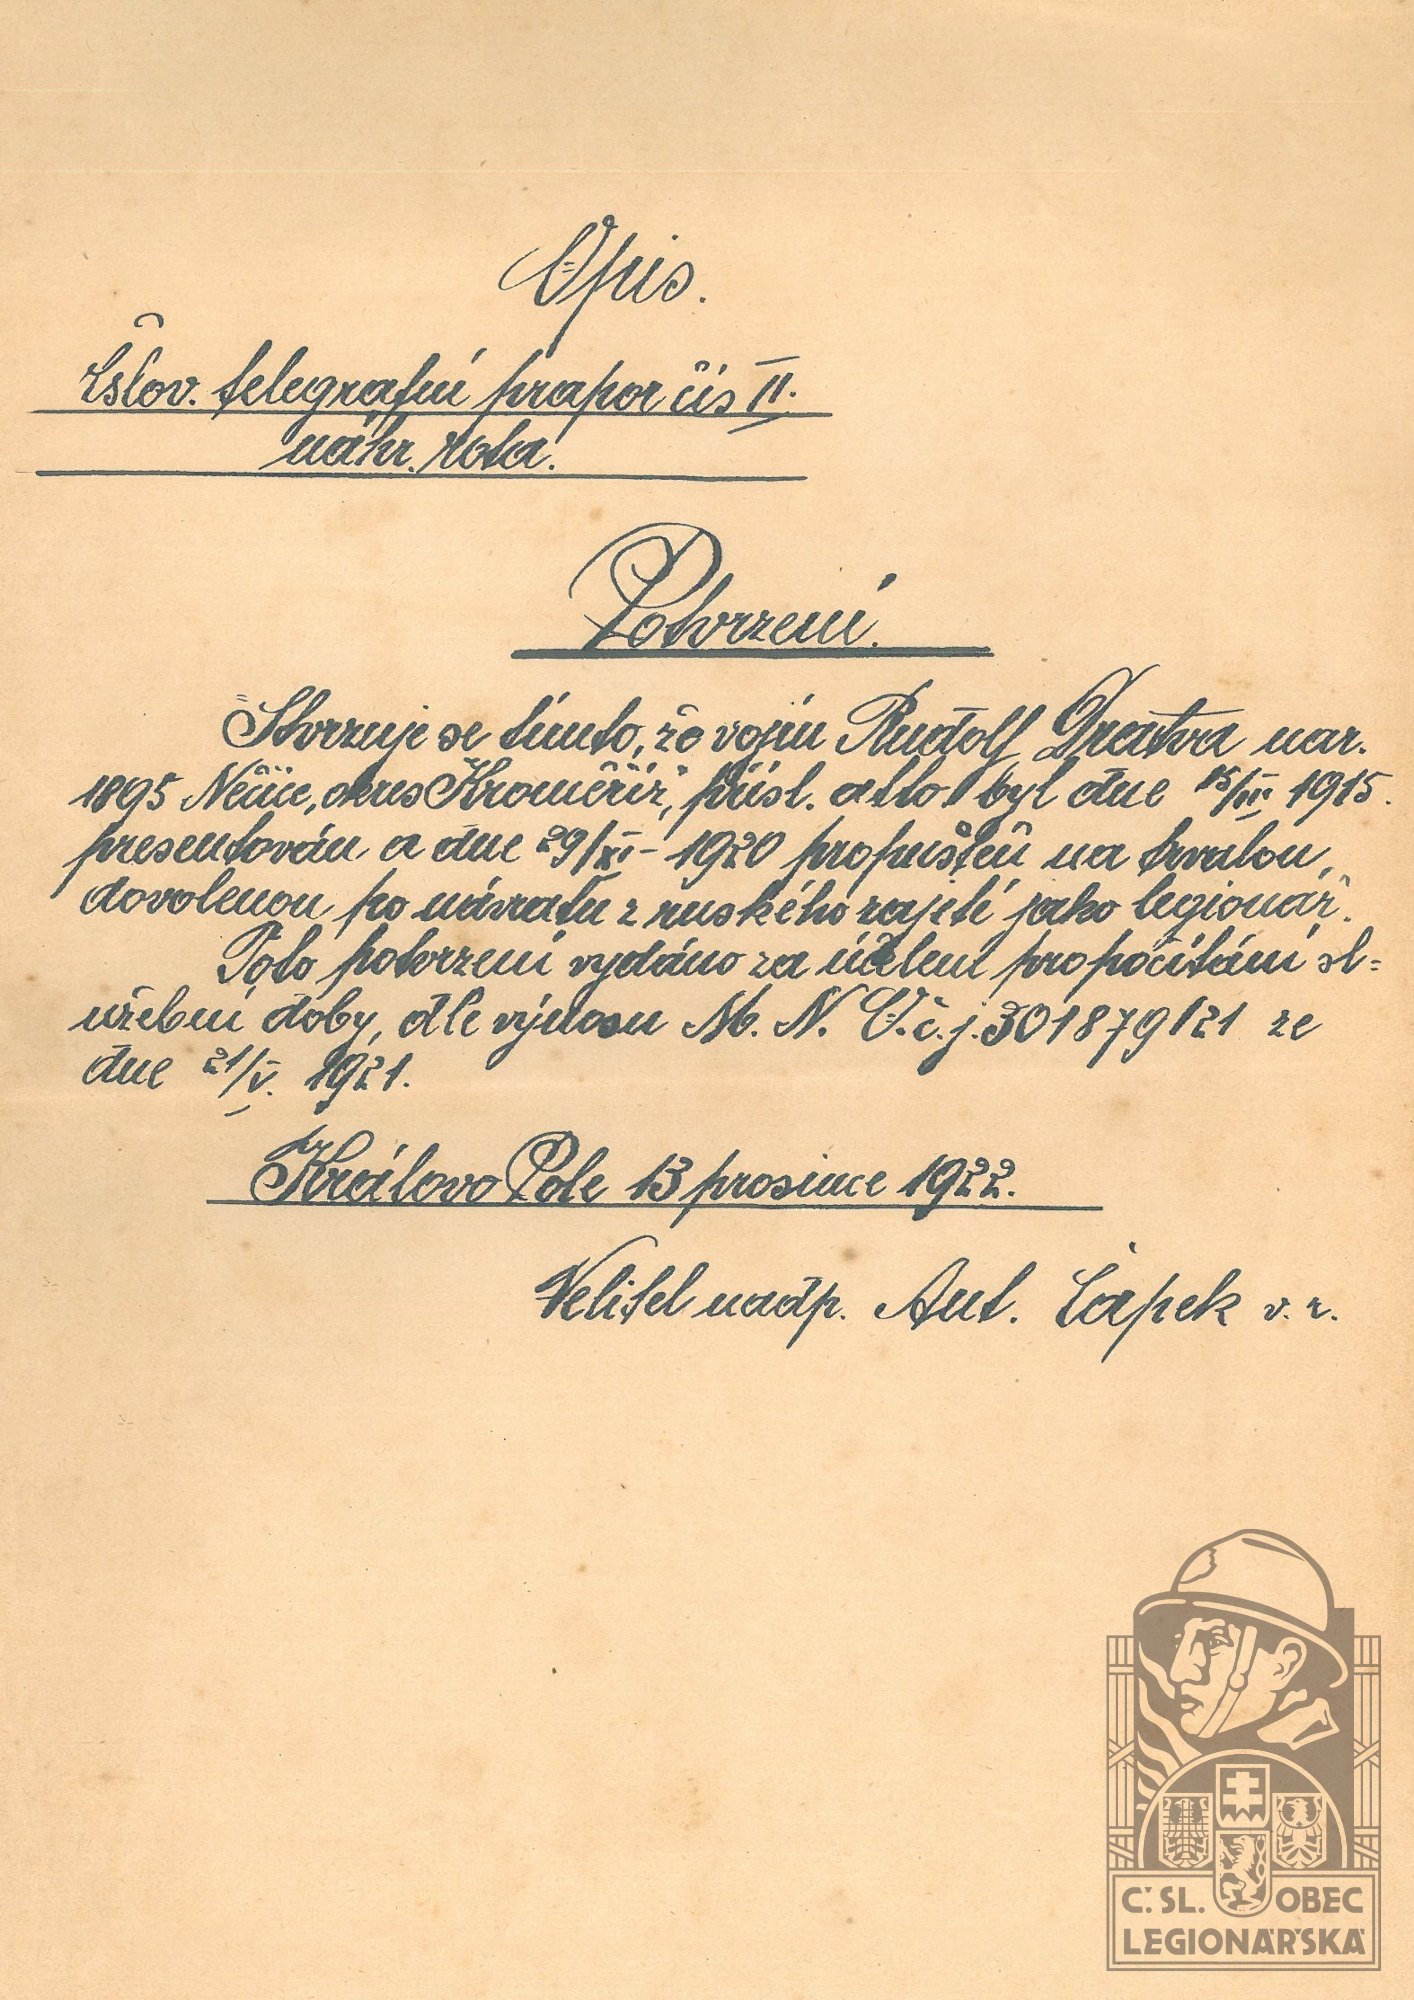 Opis.
Čslov. telegrafní prapor čís II.
náhr. rota.
Potvrzení.
Stvrzuje se tímto, že vojín Rudolf Dratva nar.
1895 Něčice, okres Kroměříž, přísl. atto byl dne 15/III 1915.
presentován a dne 29/XI - 1920 propuštěn na trvalou
dovolenou po návratu z ruského zajetí jako legionář.
Toto potvrzení vydáno za účelem propočítání sl=
užební doby, dle výnosu M. N. O. č. j. 301879/21 ze
dne 21/V. 1921.
Královo Pole 13 prosince 1922.
Velitel nadp. Ant. Čapek v. r.
Č. SL. OBEC
LEGIONÁŘSKÁ